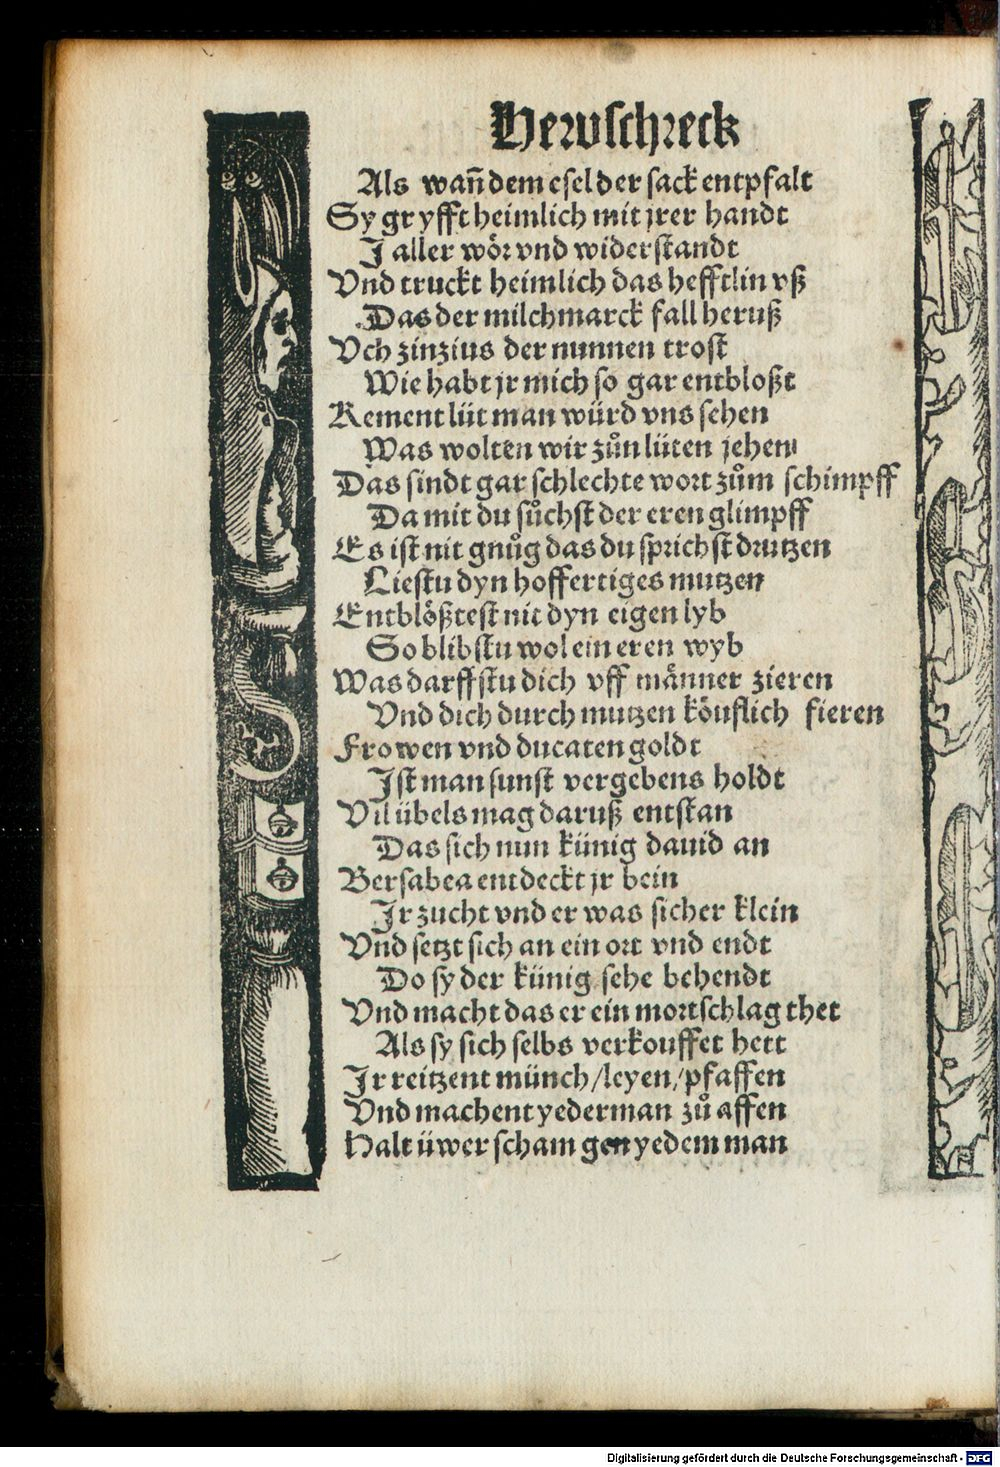 Hewschreck
Als wañ dem esel der sack entpfalt
Sy gryfft heimlich mit jrer handt
J aller wör vnd widerstandt
Vnd truckt heimlich das hefftlin vß
Das der milchmarck fall heruß
Vch zinzius der nunnen trost
Wie habt jr mich so gar entbloßt
Rement lüt man würd vns sehen
Was wolten wir zůn lüten jehen
Das sindt gar schlechte wort zům schimpff
Da mit du sůchst der eren glimpff
Es ist nit gnůg das du sprichst drutzen
Liestu dyn hoffertiges mutzen
Entblößtest nit dyn eigen lyb
So blibstu wol ein eren wyb
Was darffstu dich vff männer zieren
Vnd dich durch mutzen köuflich fieren
Frowen vnd ducaten goldt
Jst man sunst vergebens holdt
Vil übels mag daruß entstan
Das sich nun künig dauid an
Bersabea entdeckt jr bein
Jr zucht vnd er was sicher klein
Vnd setzt sich an ein ort vnd endt
Do sy der künig sehe behendt
Vnd macht das er ein mortschlag thet
Als sy sich selbs verkouffet hett
Jr reitzent münch/leyen/pfaffen
Vnd machent yederman zů affen
Halt üwer scham gen yedem man
Digitalisierung gefördert durch die Deutsche Forschungsgemeinschaft - DFG